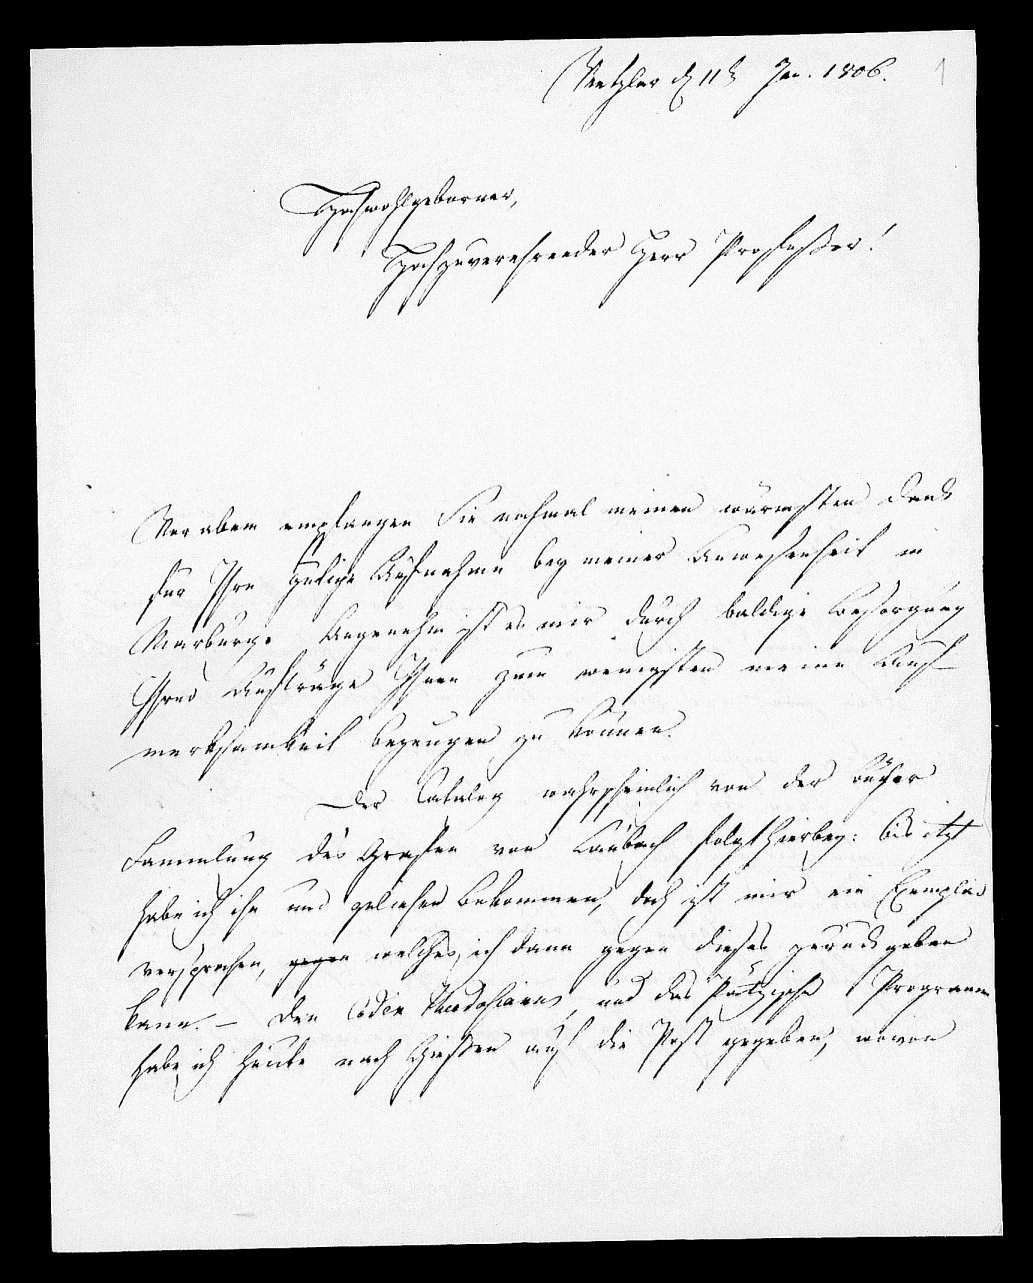 Wetzlar d 11t Jan. 1806. 1
Hochwohlgeborner,
Hochzuverehrender Herr Professor!
Vor allem empfangen Sie nochmal meinen wärmsten Dank
für Ihre gütige Aufnahme bey meiner Anwesenheit in
Marburg. Angenehm ist es mir durch baldige Besorgung
Ihrer Aufträge Ihnen zum wenigsten meine Auf-
merksamkeit bezeugen zu können.
Der Catalog wahrscheinlich von der Bücher
Sammlung des Grafen von Laubach folgt hierbey: bis itzt
habe ich ihn nur geliehen bekommen, doch ist mir ein Exemplar
versprochen, gegen welches ich dann gegen dieses zurück geben
kann. – Den Codex Theodosianus und das Pützische Programm
habe ich heute nach Giessen auf die Post gegeben, wovon